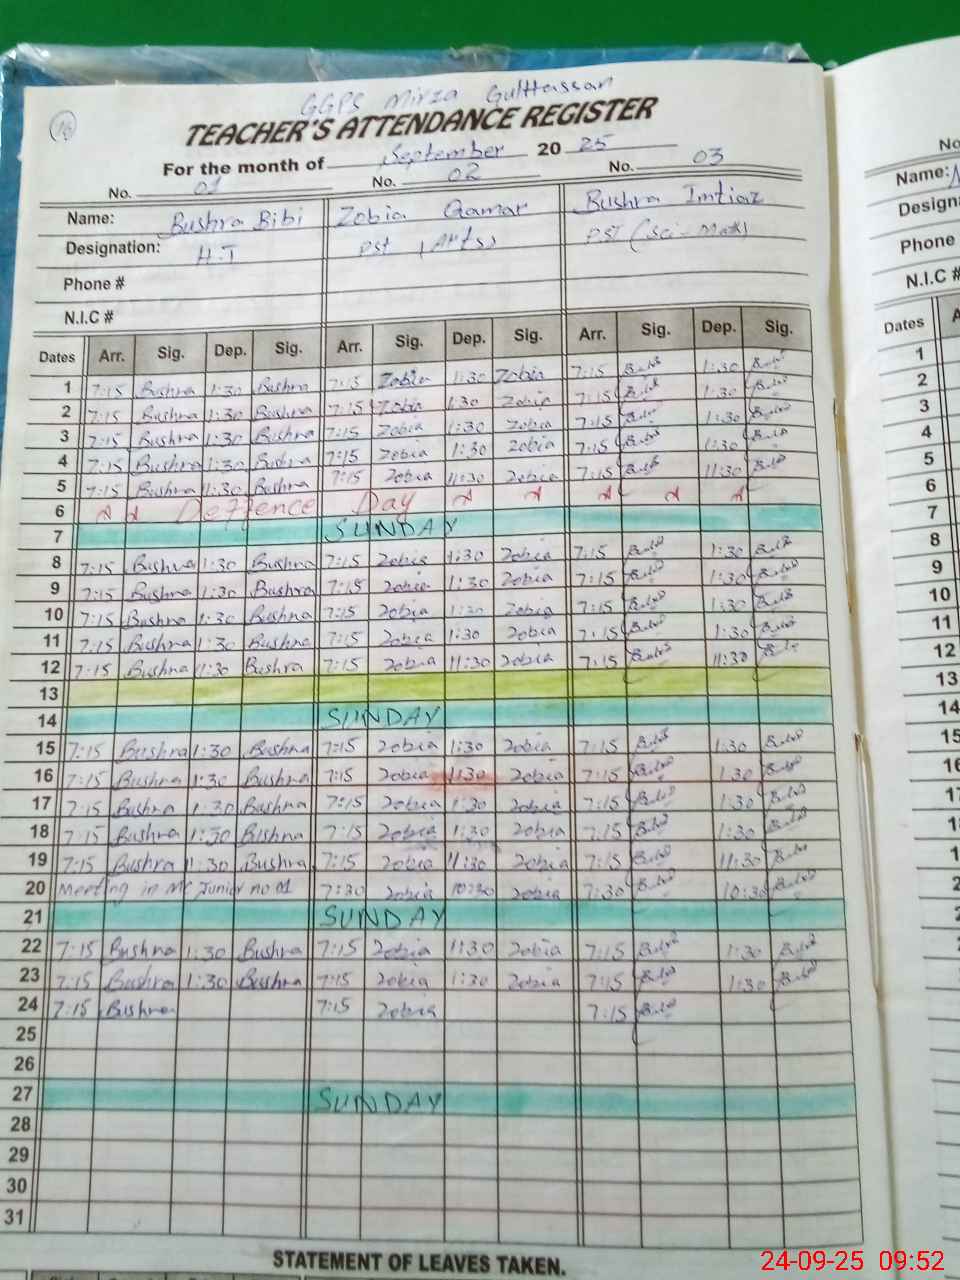 16
GGPS Mirza GulHassan
TEACHER'S ATTENDANCE REGISTER
For the month of September 20 25
No. 01 No. 02 No. 03
Name: Bushra Bibi Zobia Qamar Bushra Imtiaz
Designation: H.T PST (Arts) PST (Sci-Math)
Phone #
N.I.C #
Dates Arr. Sig. Dep. Sig. Arr. Sig. Dep. Sig. Arr. Sig. Dep. Sig.
1 7:15 Bushra 1:30 Bushra 7:15 Zobia 1:30 Zobia 7:15 1:30
2 7:15 Bushra 1:30 Bushra 7:15 Zobia 1:30 Zobia 7:15 1:30
3 7:15 Bushra 1:30 Bushra 7:15 Zobia 1:30 Zobia 7:15 1:30
4 7:15 Bushra 1:30 Bushra 7:15 Zobia 1:30 Zobia 7:15 1:30
5 7:15 Bushra 11:30 Bushra 7:15 Zobia 11:30 Zobia 7:15 11:30
6 Deffence Day
7 SUNDAY
8 7:15 Bushra 1:30 Bushra 7:15 Zobia 1:30 Zobia 7:15 1:30
9 7:15 Bushra 1:30 Bushra 7:15 Zobia 1:30 Zobia 7:15 1:30
10 7:15 Bushra 1:30 Bushra 7:15 Zobia 1:30 Zobia 7:15 1:30
11 7:15 Bushra 1:30 Bushra 7:15 Zobia 1:30 Zobia 7:15 1:30
12 7:15 Bushra 11:30 Bushra 7:15 Zobia 11:30 Zobia 7:15 11:30
13
14 SUNDAY
15 7:15 Bushra 1:30 Bushra 7:15 Zobia 1:30 Zobia 7:15 1:30
16 7:15 Bushra 1:30 Bushra 7:15 Zobia 1:30 Zobia 7:15 1:30
17 7:15 Bushra 1:30 Bushra 7:15 Zobia 1:30 Zobia 7:15 1:30
18 7:15 Bushra 1:30 Bishra 7:15 Zobia 1:30 Zobia 7:15 1:30
19 7:15 Bushra 11:30 Bushra 7:15 Zobia 11:30 Zobia 7:15 11:30
20 Meeting in MC Junior no 01 7:30 Zobia 10:30 Zobia 7:30 10:30
21 SUNDAY
22 7:15 Bushra 1:30 Bushra 7:15 Zobia 1:30 Zobia 7:15 1:30
23 7:15 Bushra 1:30 Bushra 7:15 Zobia 1:30 Zobia 7:15 1:30
24 7:15 Bushra 7:15 Zobia 7:15
25
26
27 SUNDAY
28
29
30
31
STATEMENT OF LEAVES TAKEN.
No
Name:
Designa
Phone
N.I.C #
Dates A
1
2
3
4
5
6
7
8
9
10
11
12
13
14
15
16
17
24-09-25 09:52